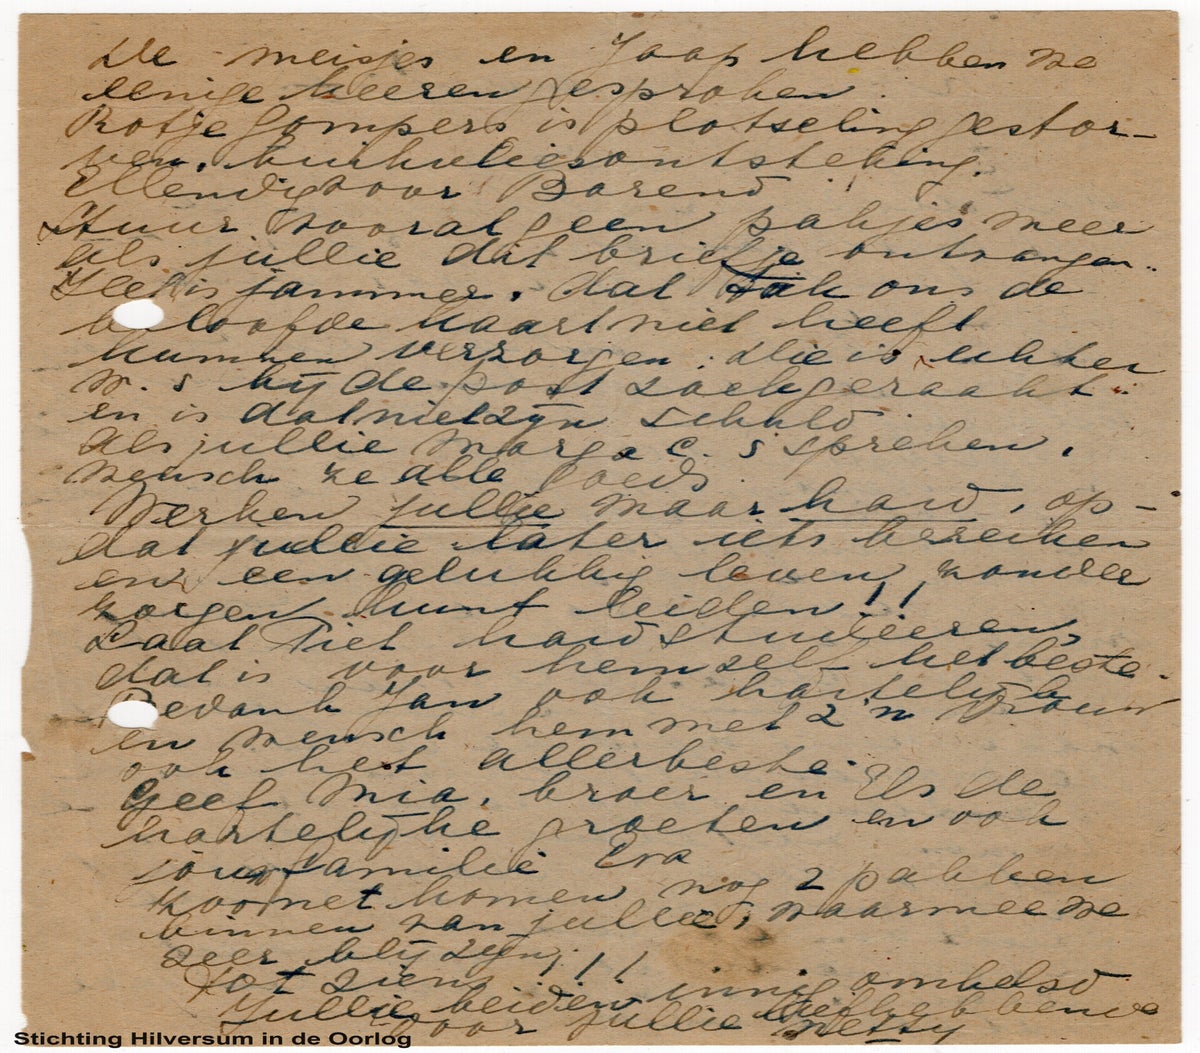 De meisjes en Jaap hebben we
eenige keeren gesproken.
Rotje Gompers is plotseling gestor-
ven, buikvliesontsteking.
Ellendig voor Barend.
Stuur vooral geen pakjes meer
als jullie dit briefje ontvangen.
Heel jammer, dat ons de
beloofde kaart niet heeft
kunnen verzorgen. Die is echter
w. s bij de post zoekgeraakt
en is dat niet zijn schuld
Als jullie Marga C. s spreken,
wensch ze alle goeds.
Werken jullie maar hard, op-
dat jullie later iets bereiken
en een gelukkig leven, zonder
zorgen kunt leiden!!
Laat Piet hard studeeren,
dat is voor hemzelf het beste.
Bedank Jan ook hartelijk
en wensch hem met z'n vrouw
ook het allerbeste.
Geef Mia, broer en Els de
hartelijke groeten en ook
jouw familie Eva
Zoonet komen nog 2 pakken
binnen van jullie, waarmee we
zeer blij zijn!!!
Tot ziens innig omhelsd
Jullie beiden liefhebbende
voor jullie Netty
Stichting Hilversum in de Oorlog